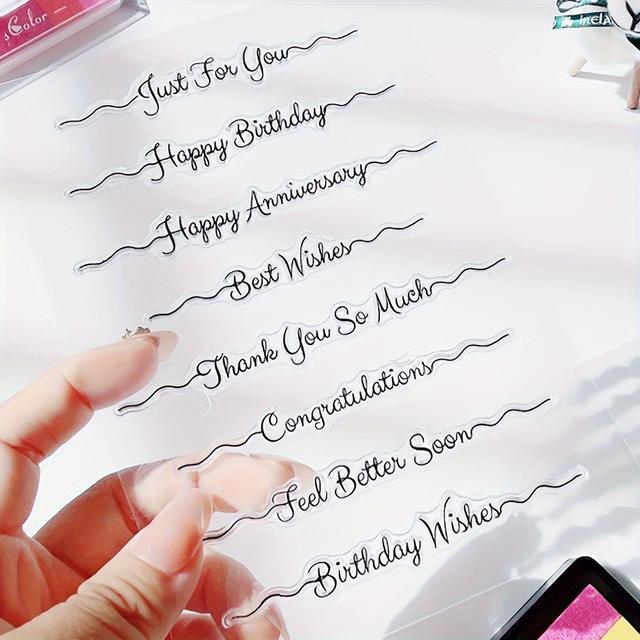 Color
Just For You
Happy Birthday
Happy Anniversary
Best Wishes
Thank You So Much
Congratulations
Feel Better Soon
Birthday Wishes